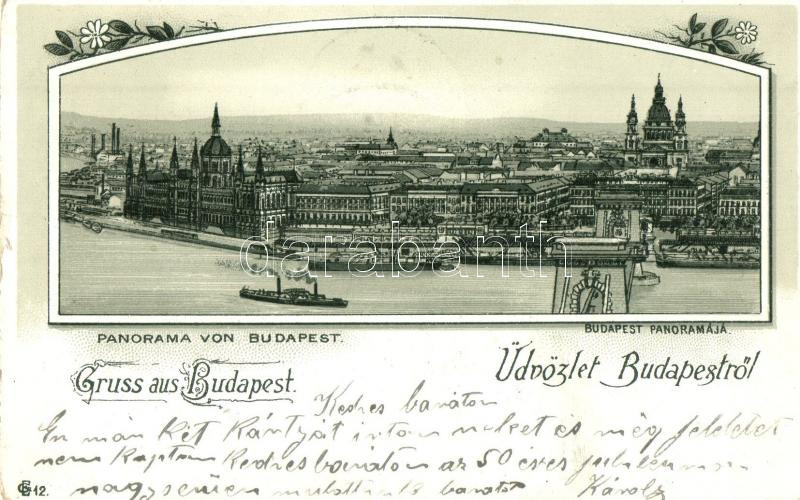 darabanth
PANORAMA VON BUDAPEST.
BUDAPEST PANORAMÁJÁ.
Gruss aus Budapest.
Üdvözlet Budapestről
Kedves barátom
Én már két kártyát irtam neked és még feleletet
nem kaptam Kedves barátom az 50 éves
nagyserüen mulattunk barátod Károly
12.